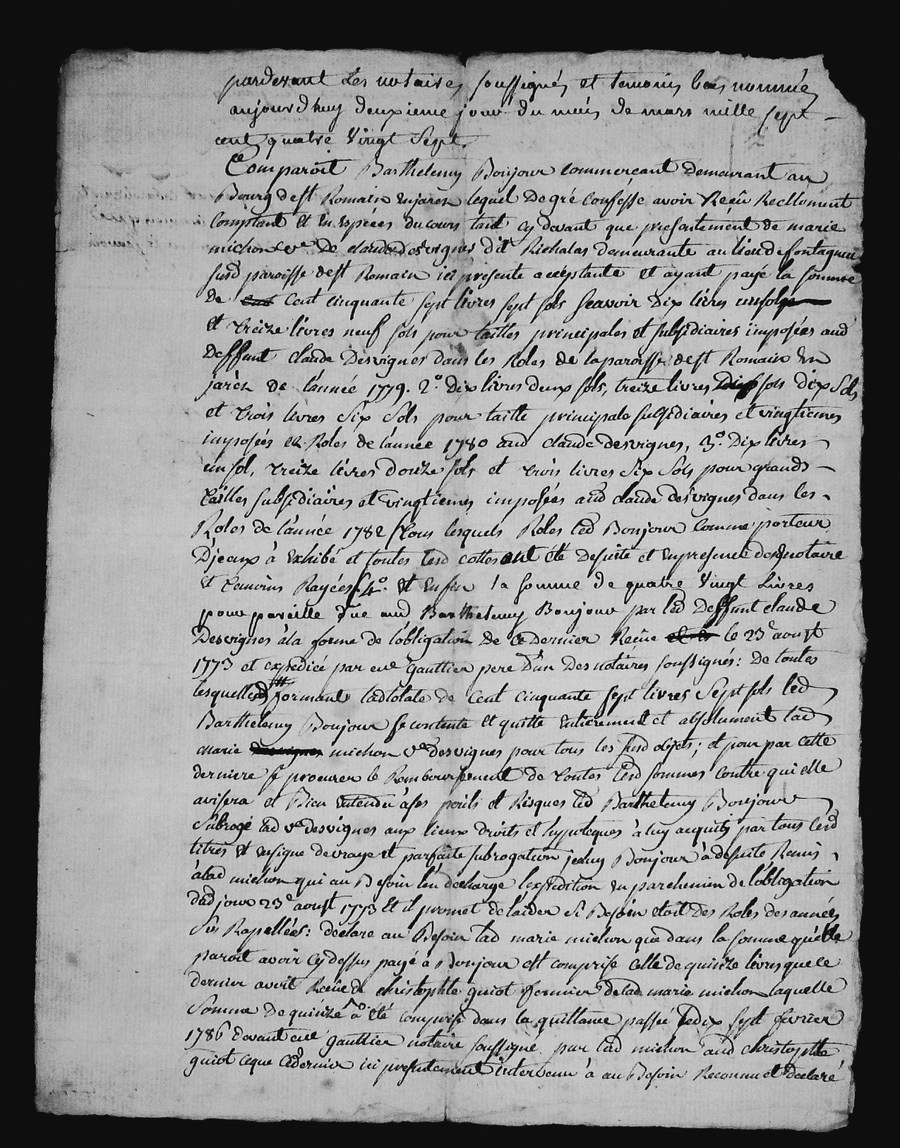 pardevant Les notaires soussignés et temoins bas nommés
aujourdhuy deuxieme jour du mois de mars mille sept
cent quatre vingt sept.
Comparoit Barthelemy Bonjour Commercant demeurant au
Bourg de st Romain en jarez lequel de gré Confesse avoir Reçû Reellement
Comptant et en Espéces du cours tant cy devant que presentement de marie
michon ve. De claude desvignes dit Richalas demeurante au lieu de fontagneu
susd paroisse de st Romain ici presente acceptante et ayant payé la somme
de Cent cinquante sept livres sept sols Scavoir Dix livres un sols
et treize livres neuf sols pour tailles principales et subsidiaires imposées aud
deffunt claude Desvignes dans les Roles de la paroisse de st Romain En
jaréz de l'année 1779. 2o. Dix livres deux sols, treize livres sols dix sols
et trois livres Six Sols pour taille principale subsidiaires et vingtiemes
imposées ez Roles de l'année 1780 aud claude desvignes, 3o. Dix livres
un sol, treize livres douze sols et trois livres six sols pour grands
tailles subsidiaires et vingtiemes imposées aud claude desvignes dans les
Roles de l'année 1782 tous lesquels Roles led Bonjour Comme porteur
D'jceux à Exhibé et toutes lesd cottes ont été desuite et en presence desd notaire
et temoins Rayées. 4o. Et Enfin la somme de quatre vingt Livres
pour pareille due aud Barthelemy Bonjour par led deffunt claude
Desvignes à la forme de l'obligation de ce Dernier Reçue le 23e aoust
1773 et expediée par me gaultier pere l'un des notaires soussignés: de toutes
lesquelles formant lad totale de Cent cinquante sept livres Sept sols led
Barthelemy Bonjour se contente et quitte entierement et absolument lad
marie michon ve desvignes pour tous les susd objets; et pour par cette
derniere se procurer le Remboursement de toutes lesd sommes contre qui elle
avisera et Bien Entendu à ses perils et Risques led Barthelemy Bonjour
subroge lad ve desvignes aux lieux droits et hypoteques à luy acquis par tous lesd
titres Et En signe de vraye et parfaite subrogation jceluy Bonjour à desuite Remis
à lad michon qui au Besoin l'en decharge l'expédition en parchemin de l'obligation
dud jour 23e aoust 1773 et il promet de l'aider si Besoin étoit des Roles des années
sus Rapellées: declare au Besoin lad marie michon que dans la somme qu'elle
paroit avoir cy dessus payé à Bonjour est comprise celle de quinze livres que ce
dernier avoit Reçue de christophle guiot fermier de lad marie michon laquelle
Somme de quinze a été comprise dans la quittance passée le dix sept fevrier
1786 devant me gaultier notaire soussigné par lad michon aud christophle
guiot ce que ce dernier ici presentement intervenu à au Besoin Reconnu et declaré